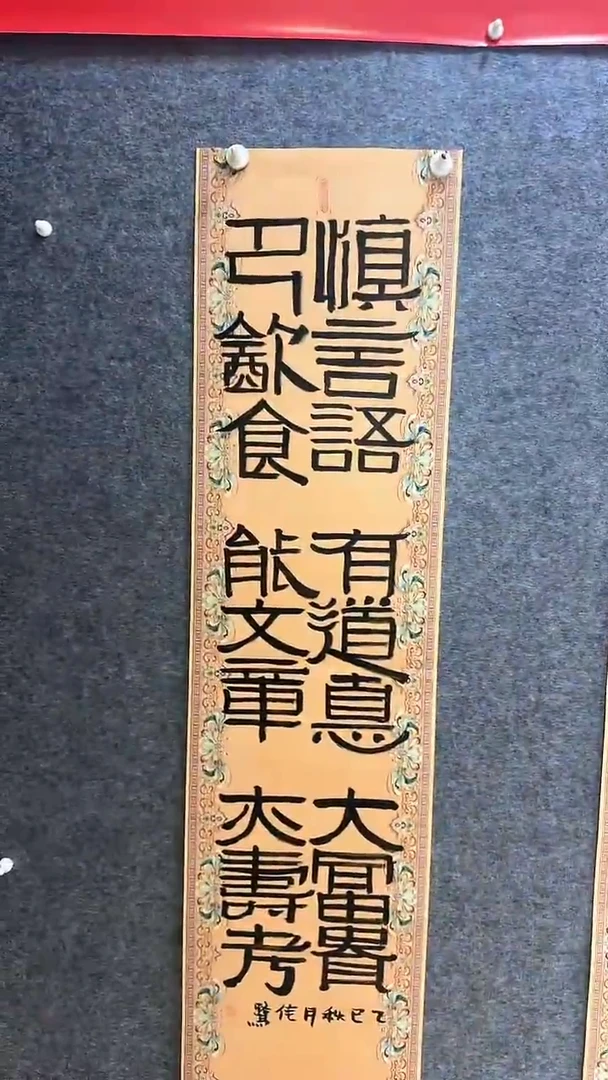 慎言語 有道惪 大富貴
卪飲食 能文章 大壽考
乙巳秋月佳